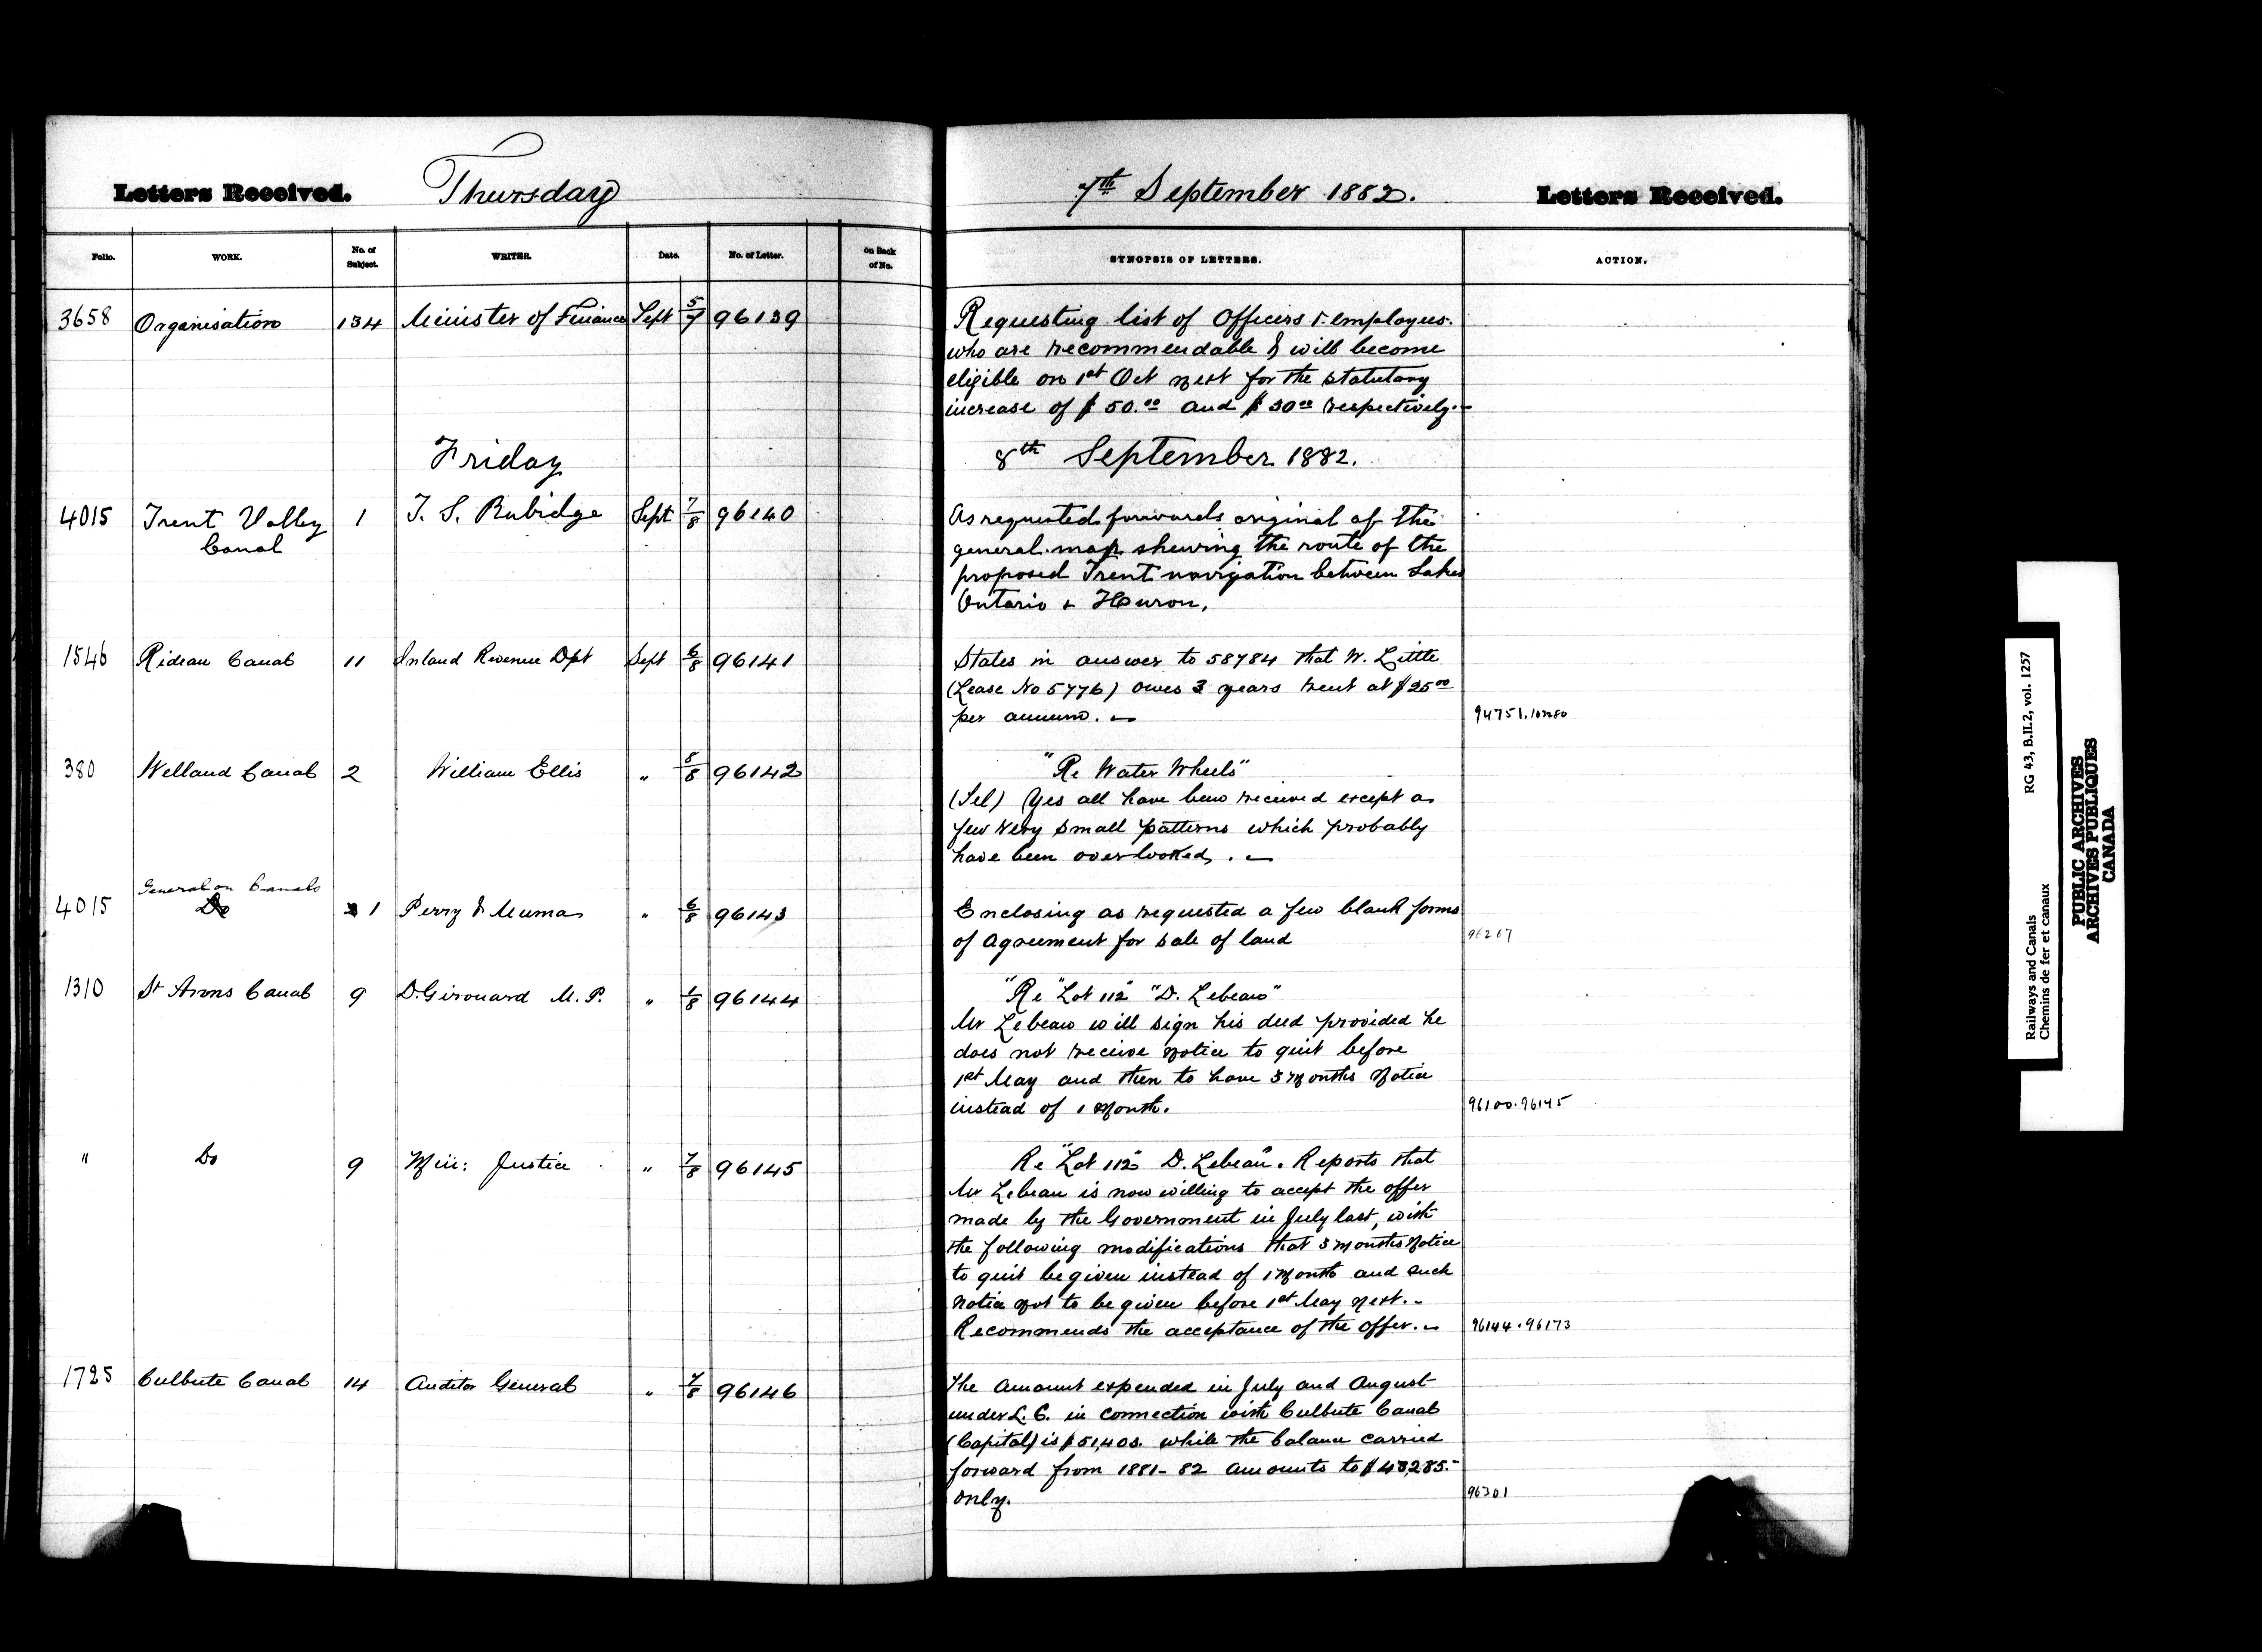 Letters Received. Thursday 7th September 1882. Letters Received.
Folio. WORK. No. of Subject. WRITER. Date. No. of Letter. on Back of No. SYNOPSIS OF LETTERS. ACTION.
3658 Organisation 134 Minister of Finance Sept 5/7 96139 Requesting list of Officers & employees.
who are recommendable & will become
eligible on 1st Oct next for the statutory
increase of $50.00 and $30.00 respectively.
Friday 8th September 1882.
4015 Trent Valley 1 T. S. Rubidge Sept 7/8 96140 As requested forwards original of the
Canal general map shewing the route of the
proposed Trent navigation between Lakes
Ontario & Huron.
1546 Rideau Canal 11 Inland Revenue Dpt Sept 6/8 96141 States in answer to 58784 that W. Little
(Lease No 5776) owes 3 years rent at $25.00
per annum. 94751.
380 Welland Canal 2 William Ellis " 8/8 96142 "Re Water Wheels"
(Tel) Yes all have been received except a
few very small patterns which probably
have been overlooked.
General on Canals
4015 Do 1 Perry & Muma " 6/8 96143 Enclosing as requested a few blank forms
of Agreement for sale of land 96267
1310 St Anns Canal 9 D. Girouard M. P. " 1/8 96144 "Re "Lot 112" "D. Lebeau"
Mr Lebeau will sign his deed provided he
does not receive notice to quit before
1st May and then to have 3 months notice
instead of 1 month. 96100.96145
" Do 9 Min: Justice " 7/8 96145 Re "Lot 112" D. Lebeau". Reports that
Mr Lebeau is now willing to accept the offer
made by the Government in July last, with
the following modifications that 3 months notice
to quit be given instead of 1 month and such
notice not to be given before 1st May next.
Recommends the acceptance of the offer. 96144.96173
1725 Culbute Canal 14 Auditor General " 7/8 96146 The amount expended in July and August
under L. C. in connection with Culbute Canal
(Capital) is $51,403. while the balance carried
forward from 1881-82 amounts to $43,285.
only. 96301
RG 43, B.II.2, vol. 1257
Railways and Canals
Chemins de fer et canaux
PUBLIC ARCHIVES
ARCHIVES PUBLIQUES
CANADA